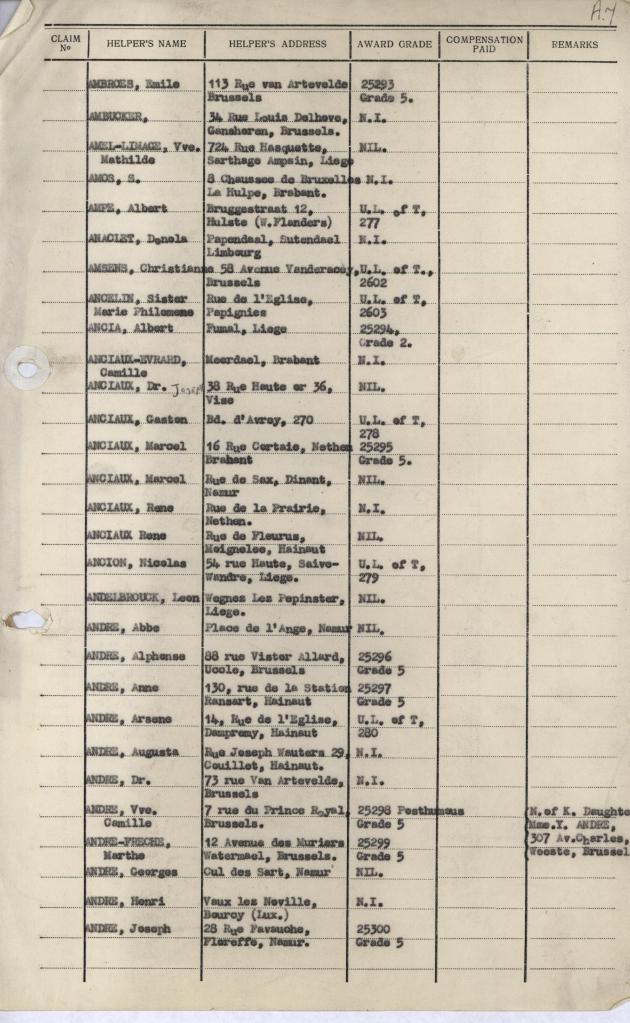 A.7
CLAIM No HELPER'S NAME HELPER'S ADDRESS AWARD GRADE COMPENSATION PAID REMARKS
AMBROES, Emile 113 Rue van Artevelde 25293
Brussels Grade 5.
AMBUCKER, 34 Rue Louis Delhove, N.I.
Ganshoren, Brussels.
AMEL-LIMAGE, Vve. 724 Rue Hasquette, NIL.
Mathilde Sarthage Ampain, Liege
AMOS, S. 8 Chaussee de Bruxelles N.I.
La Hulpe, Brabant.
AMPE, Albert Bruggestraat 12, U.L. of T,
Hulste (W.Flanders) 277
ANACLET, Donela Papendaal, Sutendael N.I.
Limbourg
AMSENS, Christianne 58 Avenue Vanderaoey, U.L. of T.,
Brussels 2602
ANCELIN, Sister Rue de l'Eglise, U.L. of T,
Marie Philomene Papignies 2603
ANCIA, Albert Fumal, Liege 25294,
Grade 2.
ANCIAUX-EVRARD, Meerdael, Brabant N.I.
Camille
ANCIAUX, Dr. Joseph 38 Rue Haute or 36, NIL.
Vise
ANCIAUX, Gaston Bd. d'Avroy, 270 U.L. of T,
278
ANCIAUX, Marcel 16 Rue Cortaie, Nethen 25295
Brabant Grade 5.
ANCIAUX, Marcel Rue de Sax, Dinant, NIL.
Namur
ANCIAUX, Rene Rue de la Prairie, N.I.
Nethen.
ANCIAUX Rene Rue de Fleurus, NIL.
Moignelee, Hainaut
ANCION, Nicolas 54 rue Haute, Saive- U.L. of T,
Wandre, Liege. 279
ANDELBROUCK, Leon Wegnez Lez Pepinster, NIL.
Liege.
ANDRE, Abbe Place de l'Ange, Namur NIL.
ANDRE, Alphonse 88 rue Vister Allard, 25296
Uccle, Brussels Grade 5
ANDRE, Anne 130, rue de la Station 25297
Ransart, Hainaut Grade 5
ANDRE, Arsene 14, Rue de l'Eglise, U.L. of T,
Dampremy, Hainaut 280
ANDRE, Augusta Rue Joseph Wauters 29, N.I.
Couillet, Hainaut.
ANDRE, Dr. 73 rue Van Artevelde, N.I.
Brussels
ANDRE, Vve. 7 rue du Prince Royal, 25298 Posthumous N.of K. Daughte
Camille Brussels. Grade 5 Mme.Y. ANDRE,
ANDRE-FRECHE, 12 Avenue des Muriers 25299 307 Av.Charles,
Marthe Watermael, Brussels. Grade 5 Woeste, Brussel
ANDRE, Georges Cul des Sart, Namur NIL.
ANDRE, Henri Vaux lez Noville, N.I.
Bourcy (Lux.)
ANDRE, Joseph 28 Rue Favauche, 25300
Floreffe, Namur. Grade 5